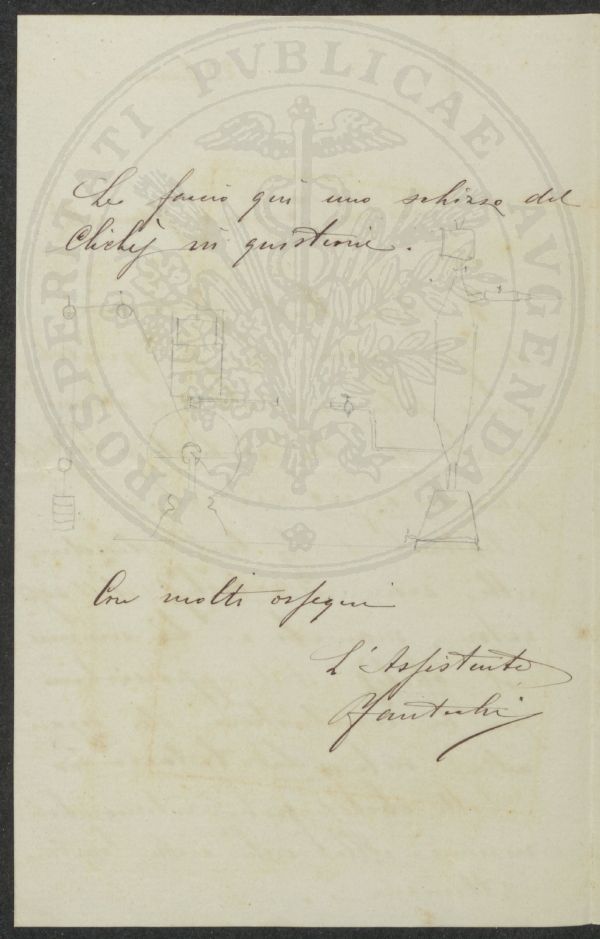 PROSPERITATI PVBLICAE AVGENDAE
Le faccio qui uno schizzo del
Clichèj in quistione.
Con molti ossequi
L'Assistente